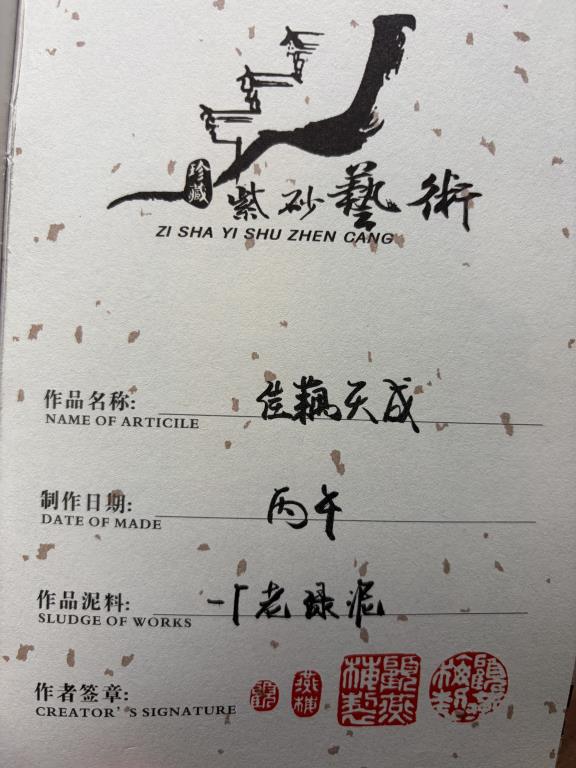 珍藏
紫砂藝術
ZI SHA YI SHU ZHEN CANG
作品名称: 佳藕天成
NAME OF ARTICILE
制作日期: 丙午
DATE OF MADE
作品泥料: 一厂老绿泥
SLUDGE OF WORKS
作者签章: 顧 燕梅 顧燕梅製
CREATOR'S SIGNATURE